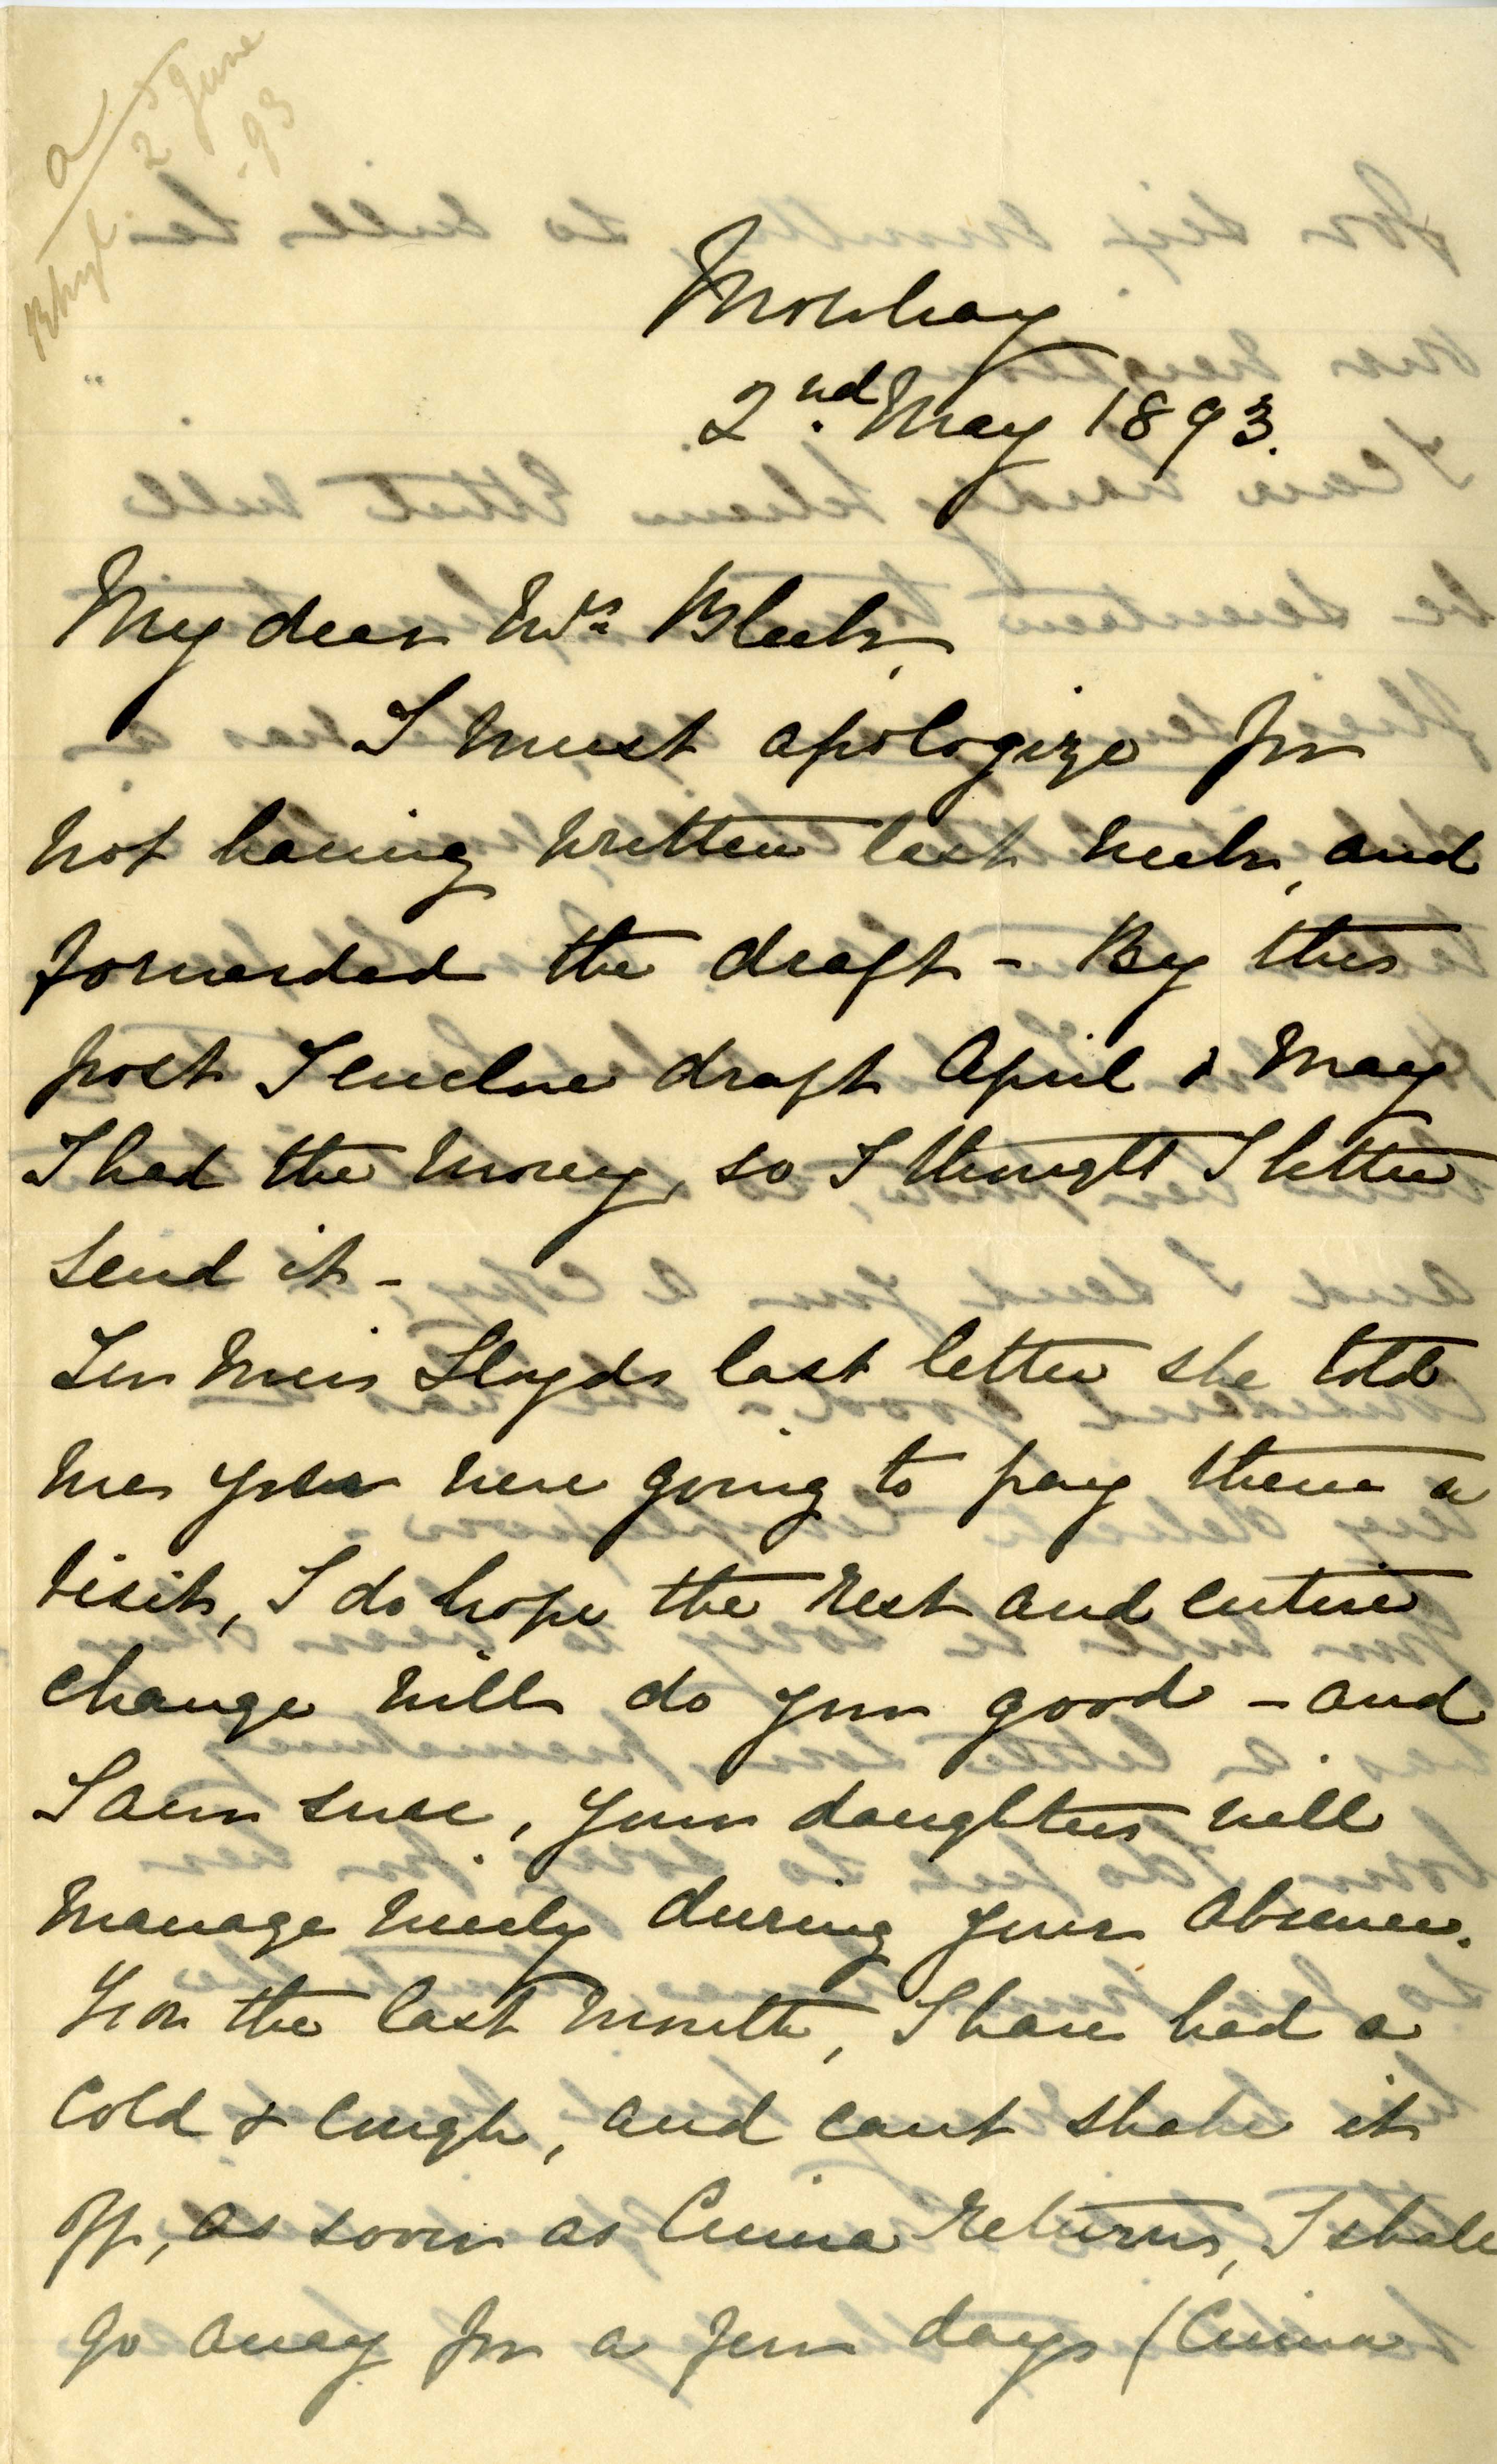 a/ 5 June
2 -93
Rhyl
Mowbray
2nd. May 1893.
My dear Mrs Bleek,
I must apologize for
not having written last week, and
forwarded the draft - By this
post I enclose draft April & May
I had the money, so I thought I better
send it -
In Miss Lloyds last letter she told
me you were going to pay them a
visit, I do hope the rest and entire
change will do you good - and
I am sure, your daughters will
manage nicely during your absence.
For the last month, I have had a
cold & cough, and cant shake it
off, as soon as Emma returns, I shall
go away for a few days (Emma